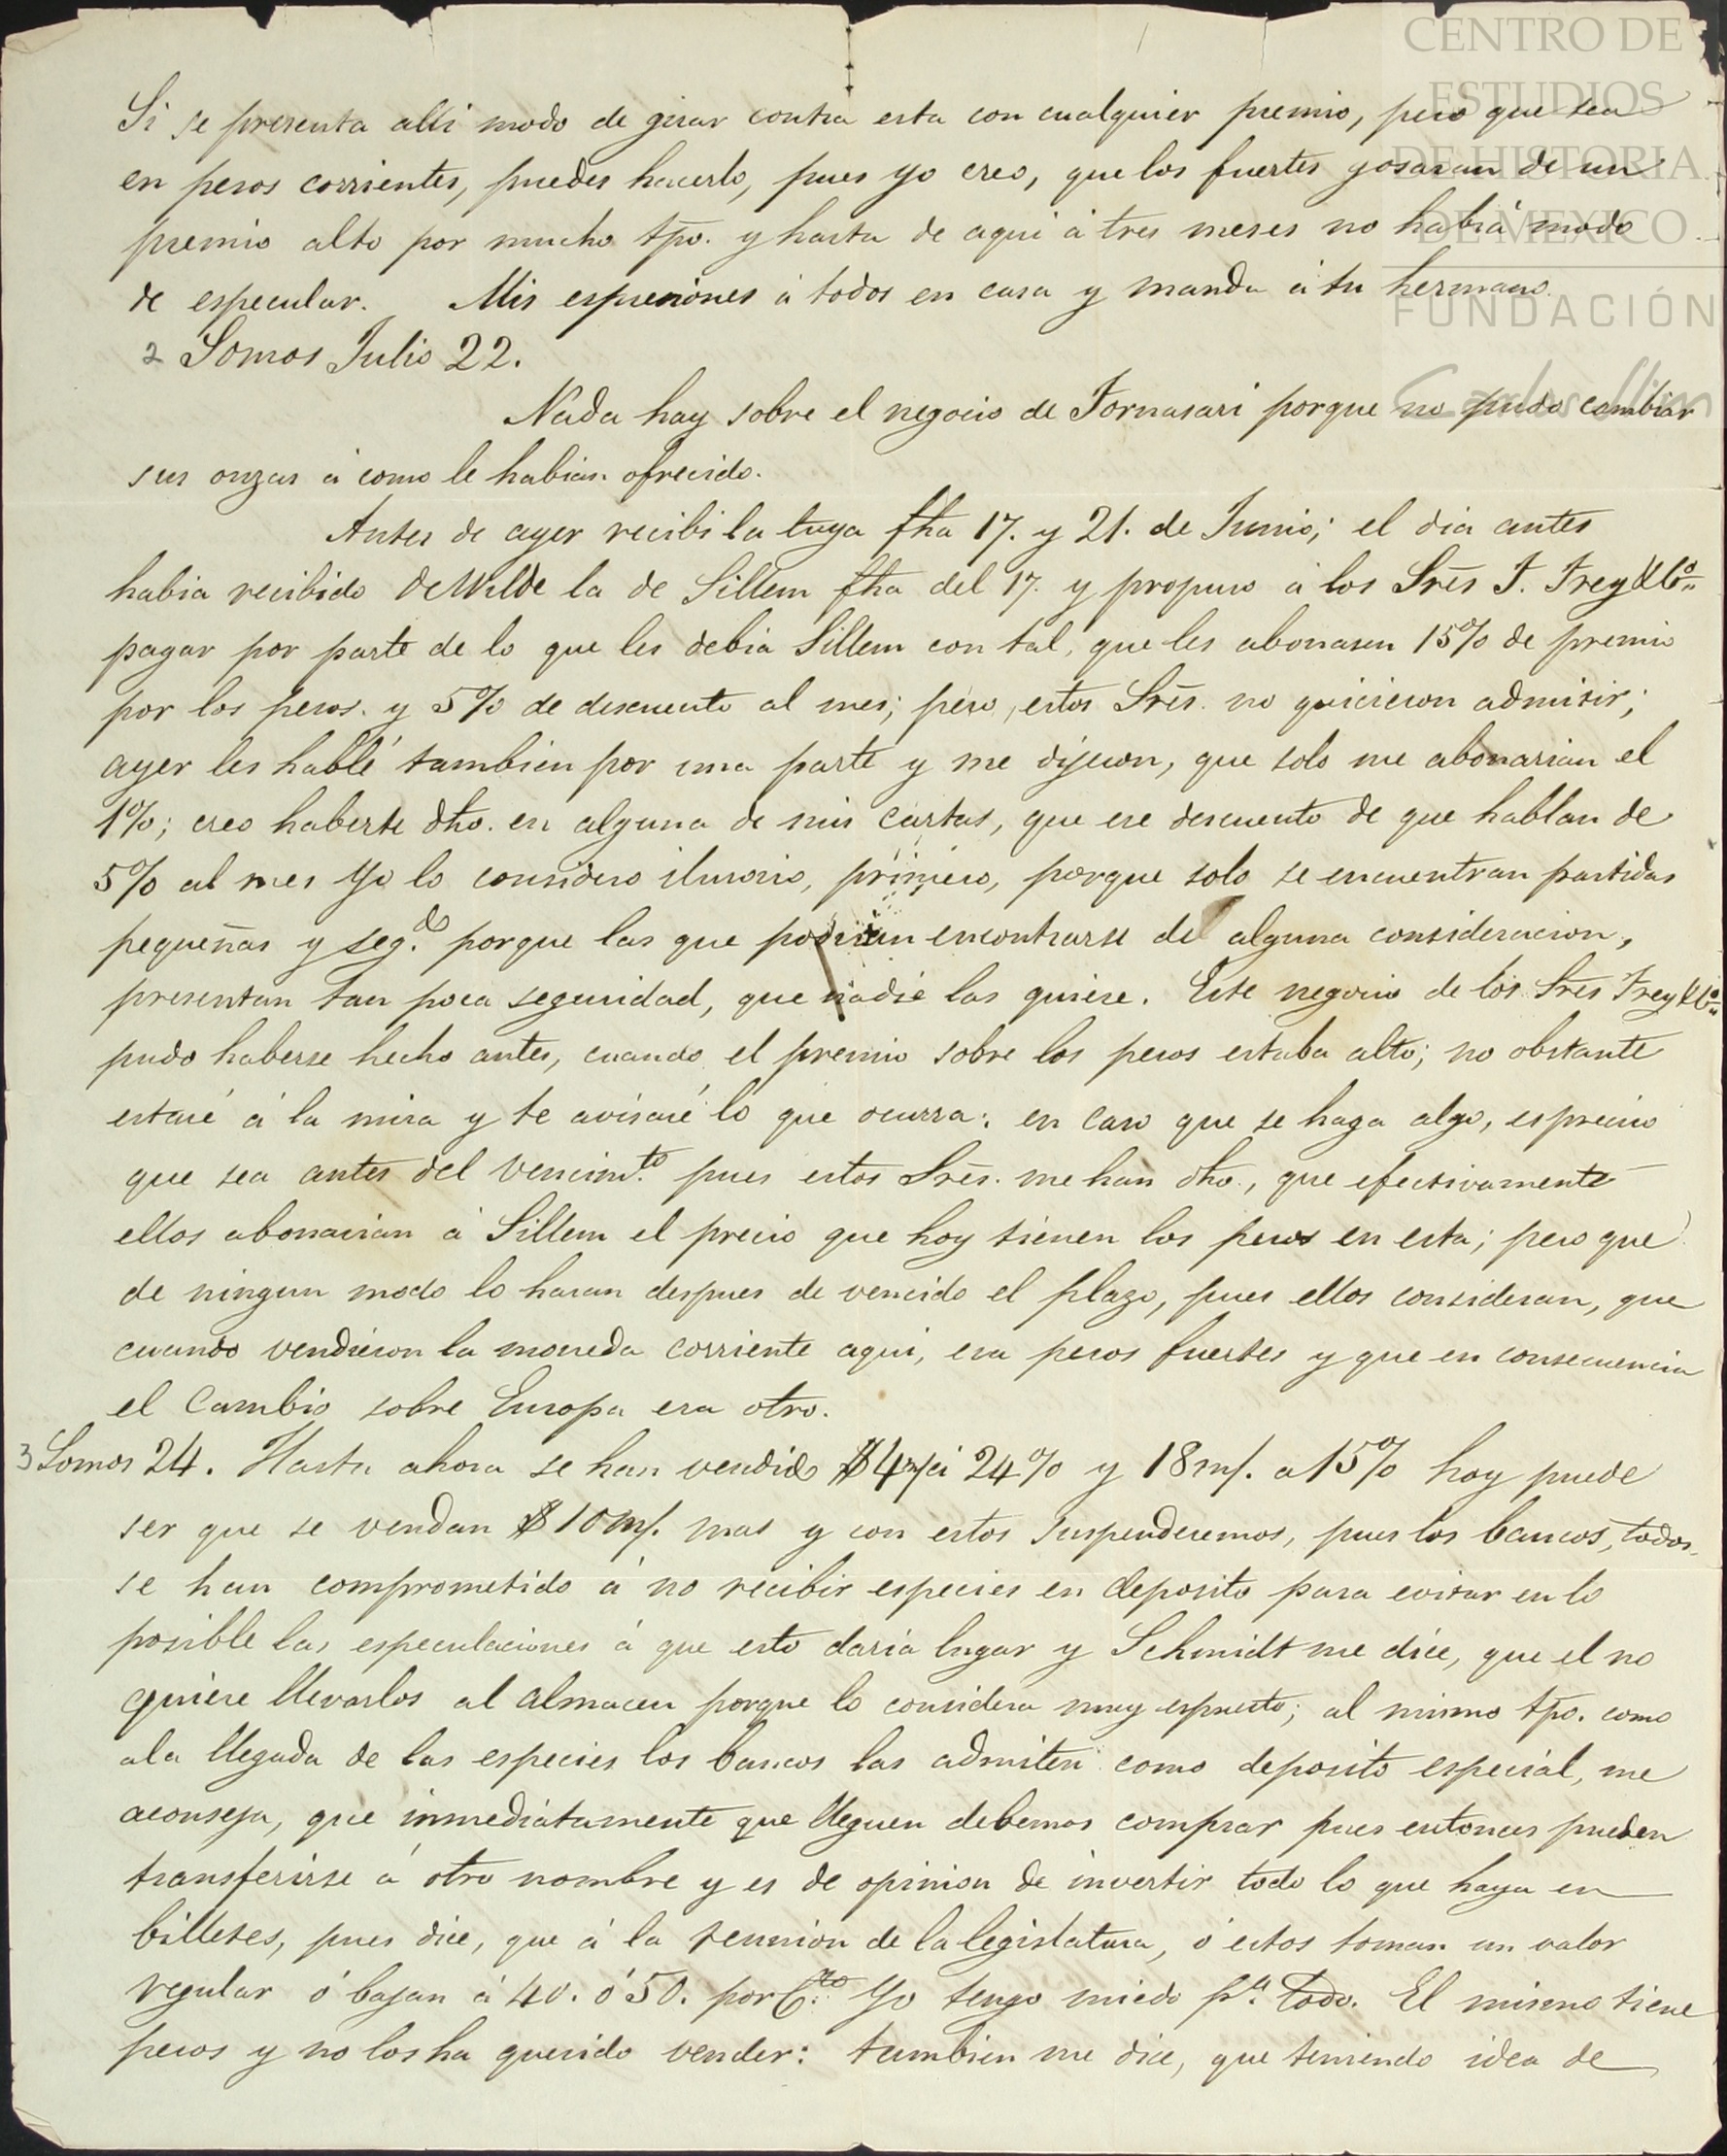 CENTRO DE
ESTUDIOS
DE HISTORIA
DE MEXICO
FUNDACIÓN
Carlos Slim
Si se presenta alli modo de girar contra esta con cualquier premio, pero que sea
en pesos corrientes, puedes hacerlo, pues yo creo, que los fuertes gosaran de un
premio alto por mucho tpo. y hasta de aqui á tres meses no habrá modo
de especular. Mis espresiónes á todos en casa y manda á tu hermano.
2 Somos Julio 22.
Nada hay sobre el negocio de Fornasari porque no pudo cambiar
sus onzas á como le habian ofrecido.
Antes de ayer recibi la tuya fha 17. y 21. de Junio; el dia antes
habia recibido DeWilde la de Sillem fha del 17. y propuso á los Srēs F. Frey & Cº
pagar por parte de lo que les debia Sillem con tal, que les abonasen 15% de premio
por los pesos. y 5% de descuento al mes; pero, estos Srēs. no quicieron admitir;
ayer les hablé tambien por una parte y me dijeron, que solo me abonarian el
1%; creo haberte dho. en alguna de mis cartas, que ese descuento de que hablan de
5% al mes yo lo considero ilusorio, primero, porque solo se encuentran partidas
pequeñas y seg.do porque las que podrian encontrarse de alguna consideracion,
presentan tan poca seguridad, que nadie las quiere. Este negocio de los Srēs Frey & Cº
pudo haberse hecho antes, cuando el premio sobre los pesos estaba alto; no obstante
estaré á la mira y te avisaré lo que ocurra: en caso que se haga algo, es preciso
que sea antes del vencim.to pues estos Srēs. me han dho., que efectivamente
ellos abonarian á Sillem el precio que hoy tienen los pesos en esta; pero que
de ningun modo lo haran despues de vencido el plazo, pues ellos consideran, que
cuando vendieron la moneda corriente aqui, era pesos fuertes y que en consecuencia
el Cambio sobre Europa era otro.
3 Somos 24. Hasta ahora se han vendido $4m/ á 24% y 18m/. a 15% hoy puede
ser que se vendan $10m/. mas y con estos suspenderemos, pues los bancos, todos
se han comprometido á no recibir especies en deposito para evitar en lo
posible las especulaciones á que esto daria lugar y Schmidt me dice, que el no
quiere llevarlos al almacen porque lo considera muy espuesto; al mismo tpo. como
ala llegada de las especies los bancos las admiten como deposito especial, me
aconseja, que inmediatamente que lleguen debemos comprar pues entonces pueden
transferirse á otro nombre y es de opinion de invertir todo lo que haya en
billetes, pues dice, que á la reunion de la legislatura, ó estos toman un valor
regular ó bajan á 40. ó 50. por C.to Yo tengo miedo p.a todo. El mismo tiene
pesos y no los ha querido vender: tambien me dice, que teniendo idea de